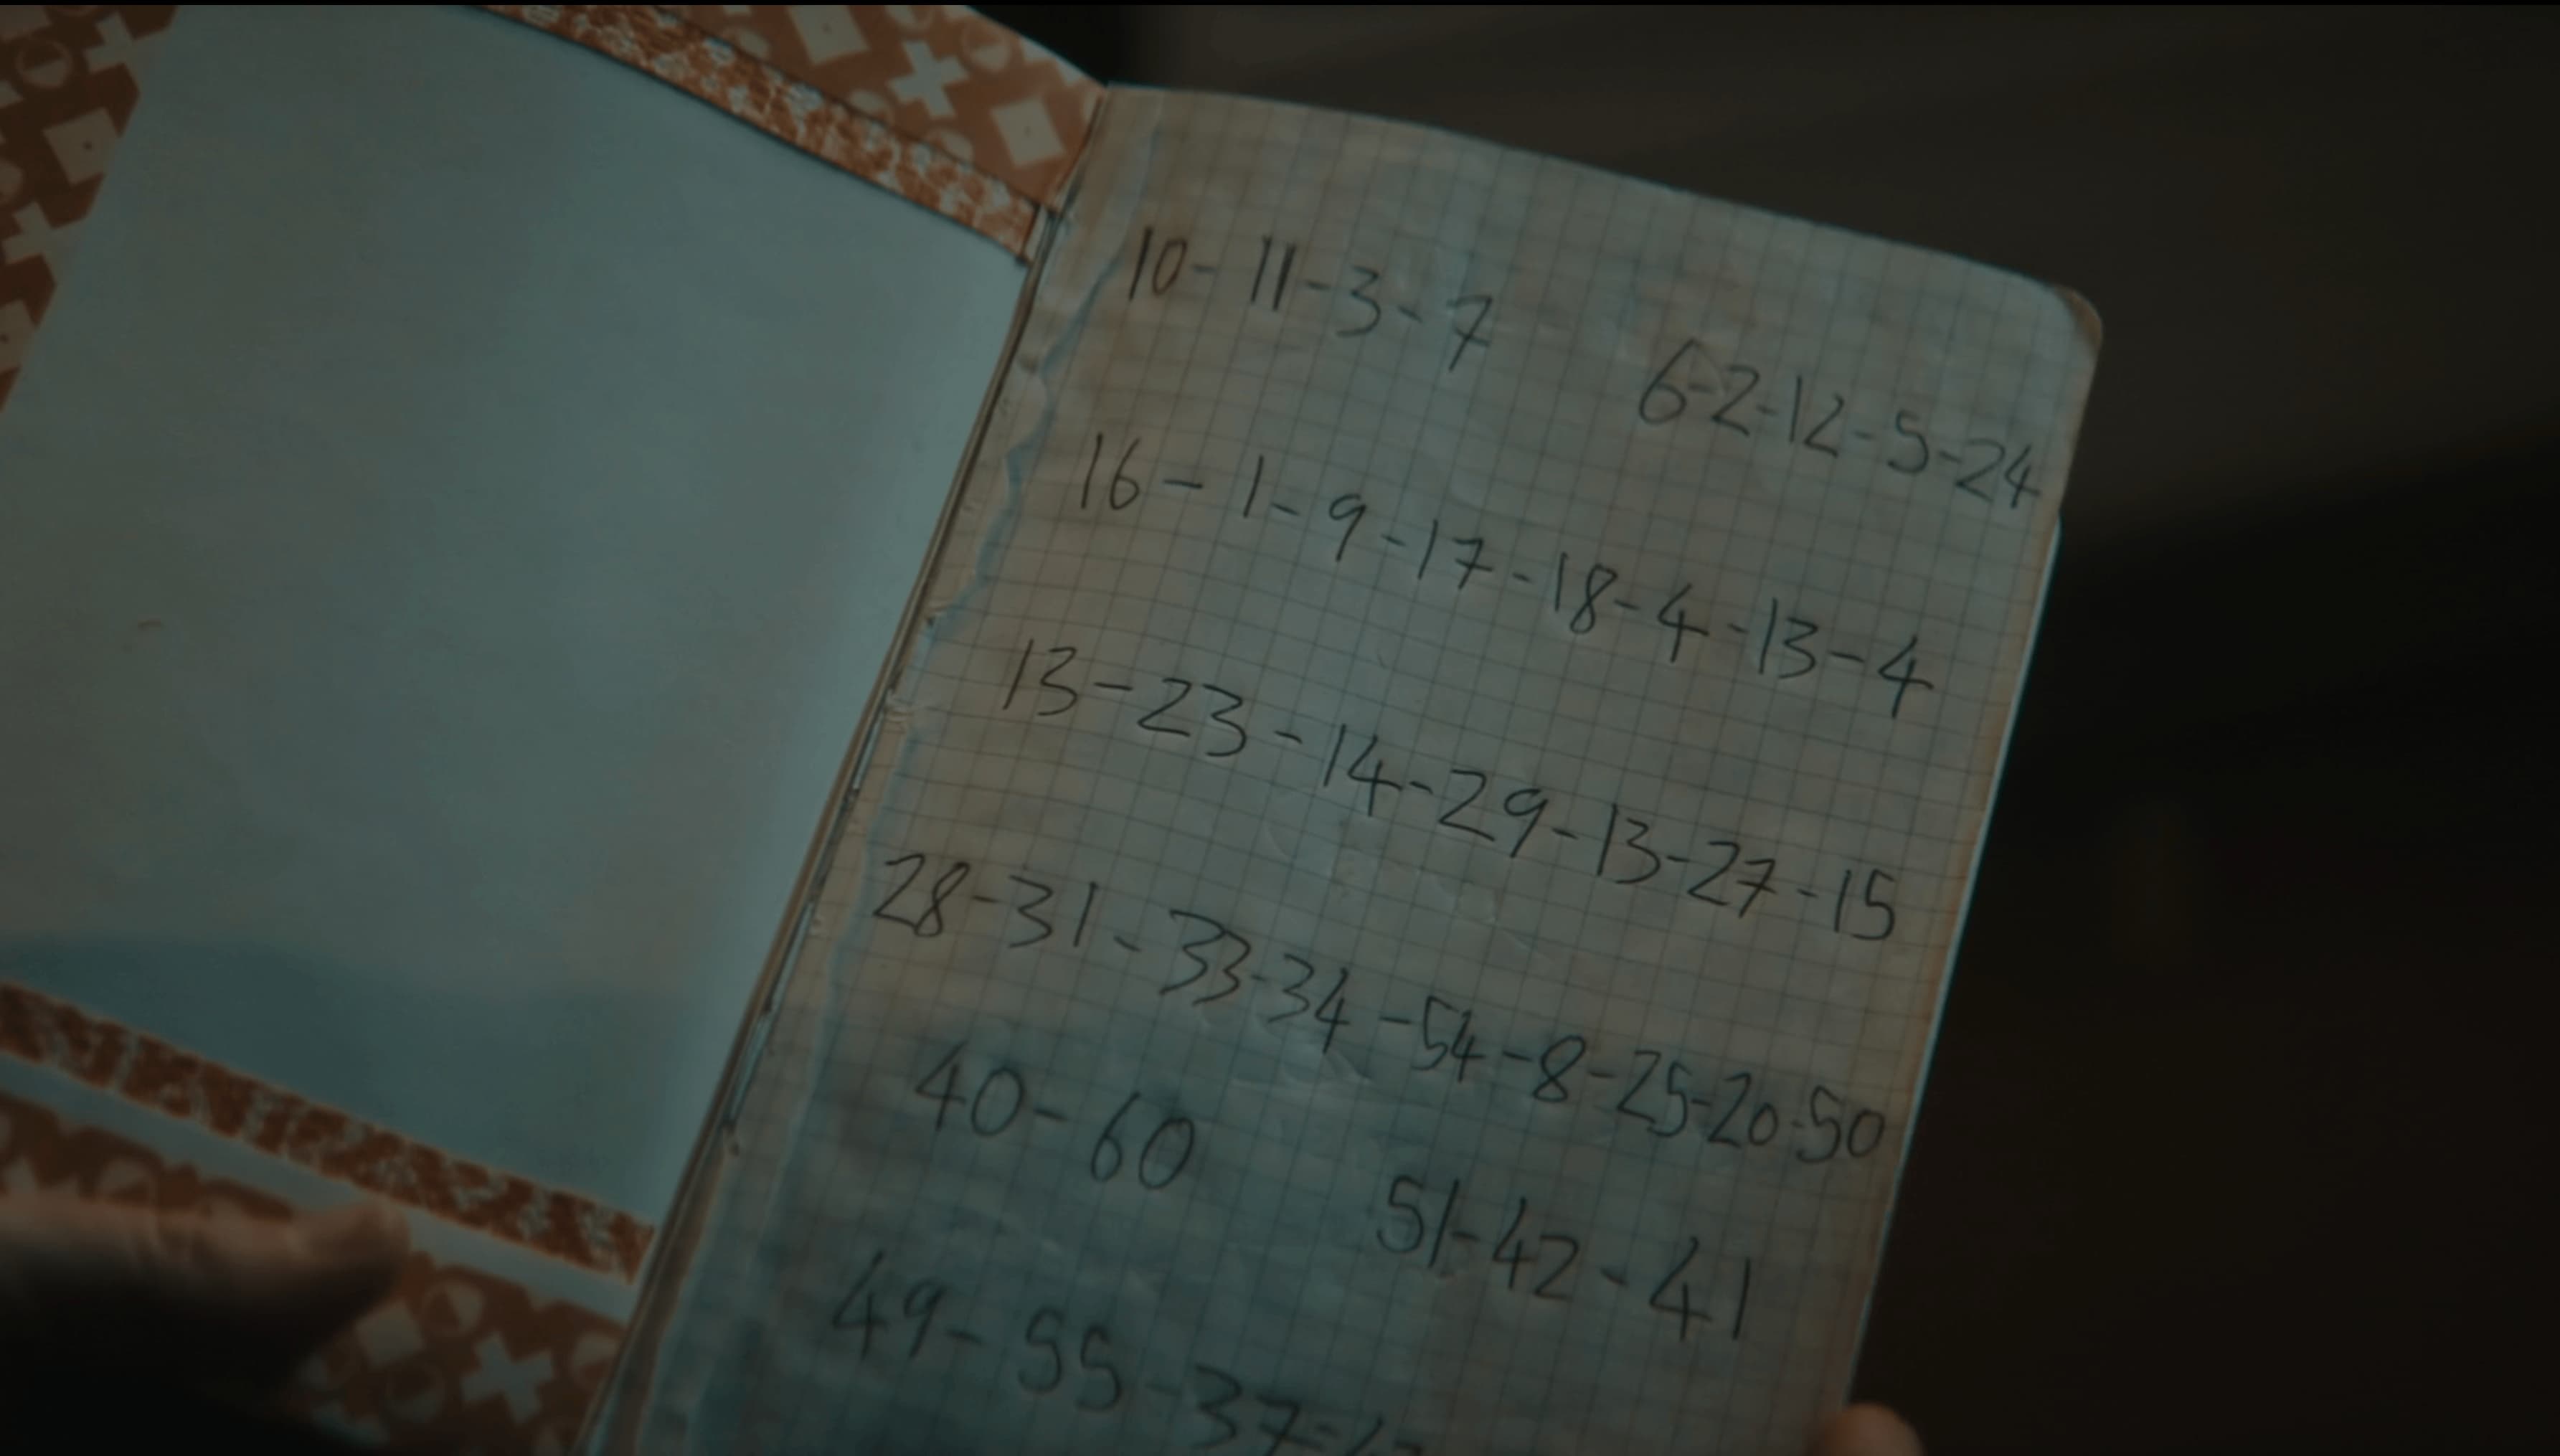 10-11-3-7 6-2-12-5-24
16-1-9-17-18-4-13-4
13-23-14-29-13-27-15
28-31-33-34-54-8-25-20-50
40-60 51-42-41
49-55-37-